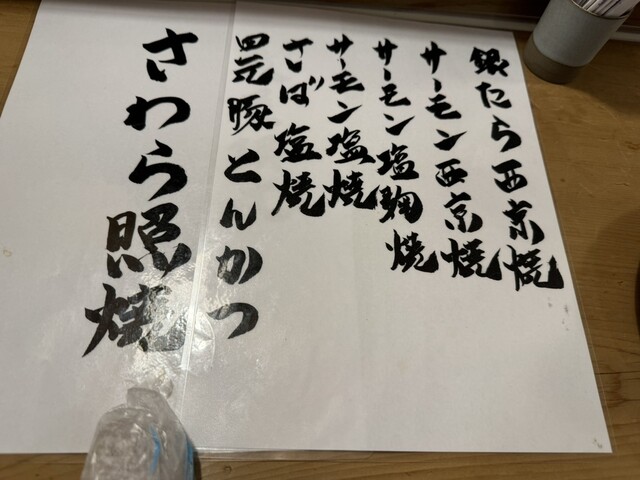 銀たら西京焼
サーモン西京焼
サーモン塩麹焼
サーモン塩焼
さば塩焼
四元豚とんかつ
さわら照焼